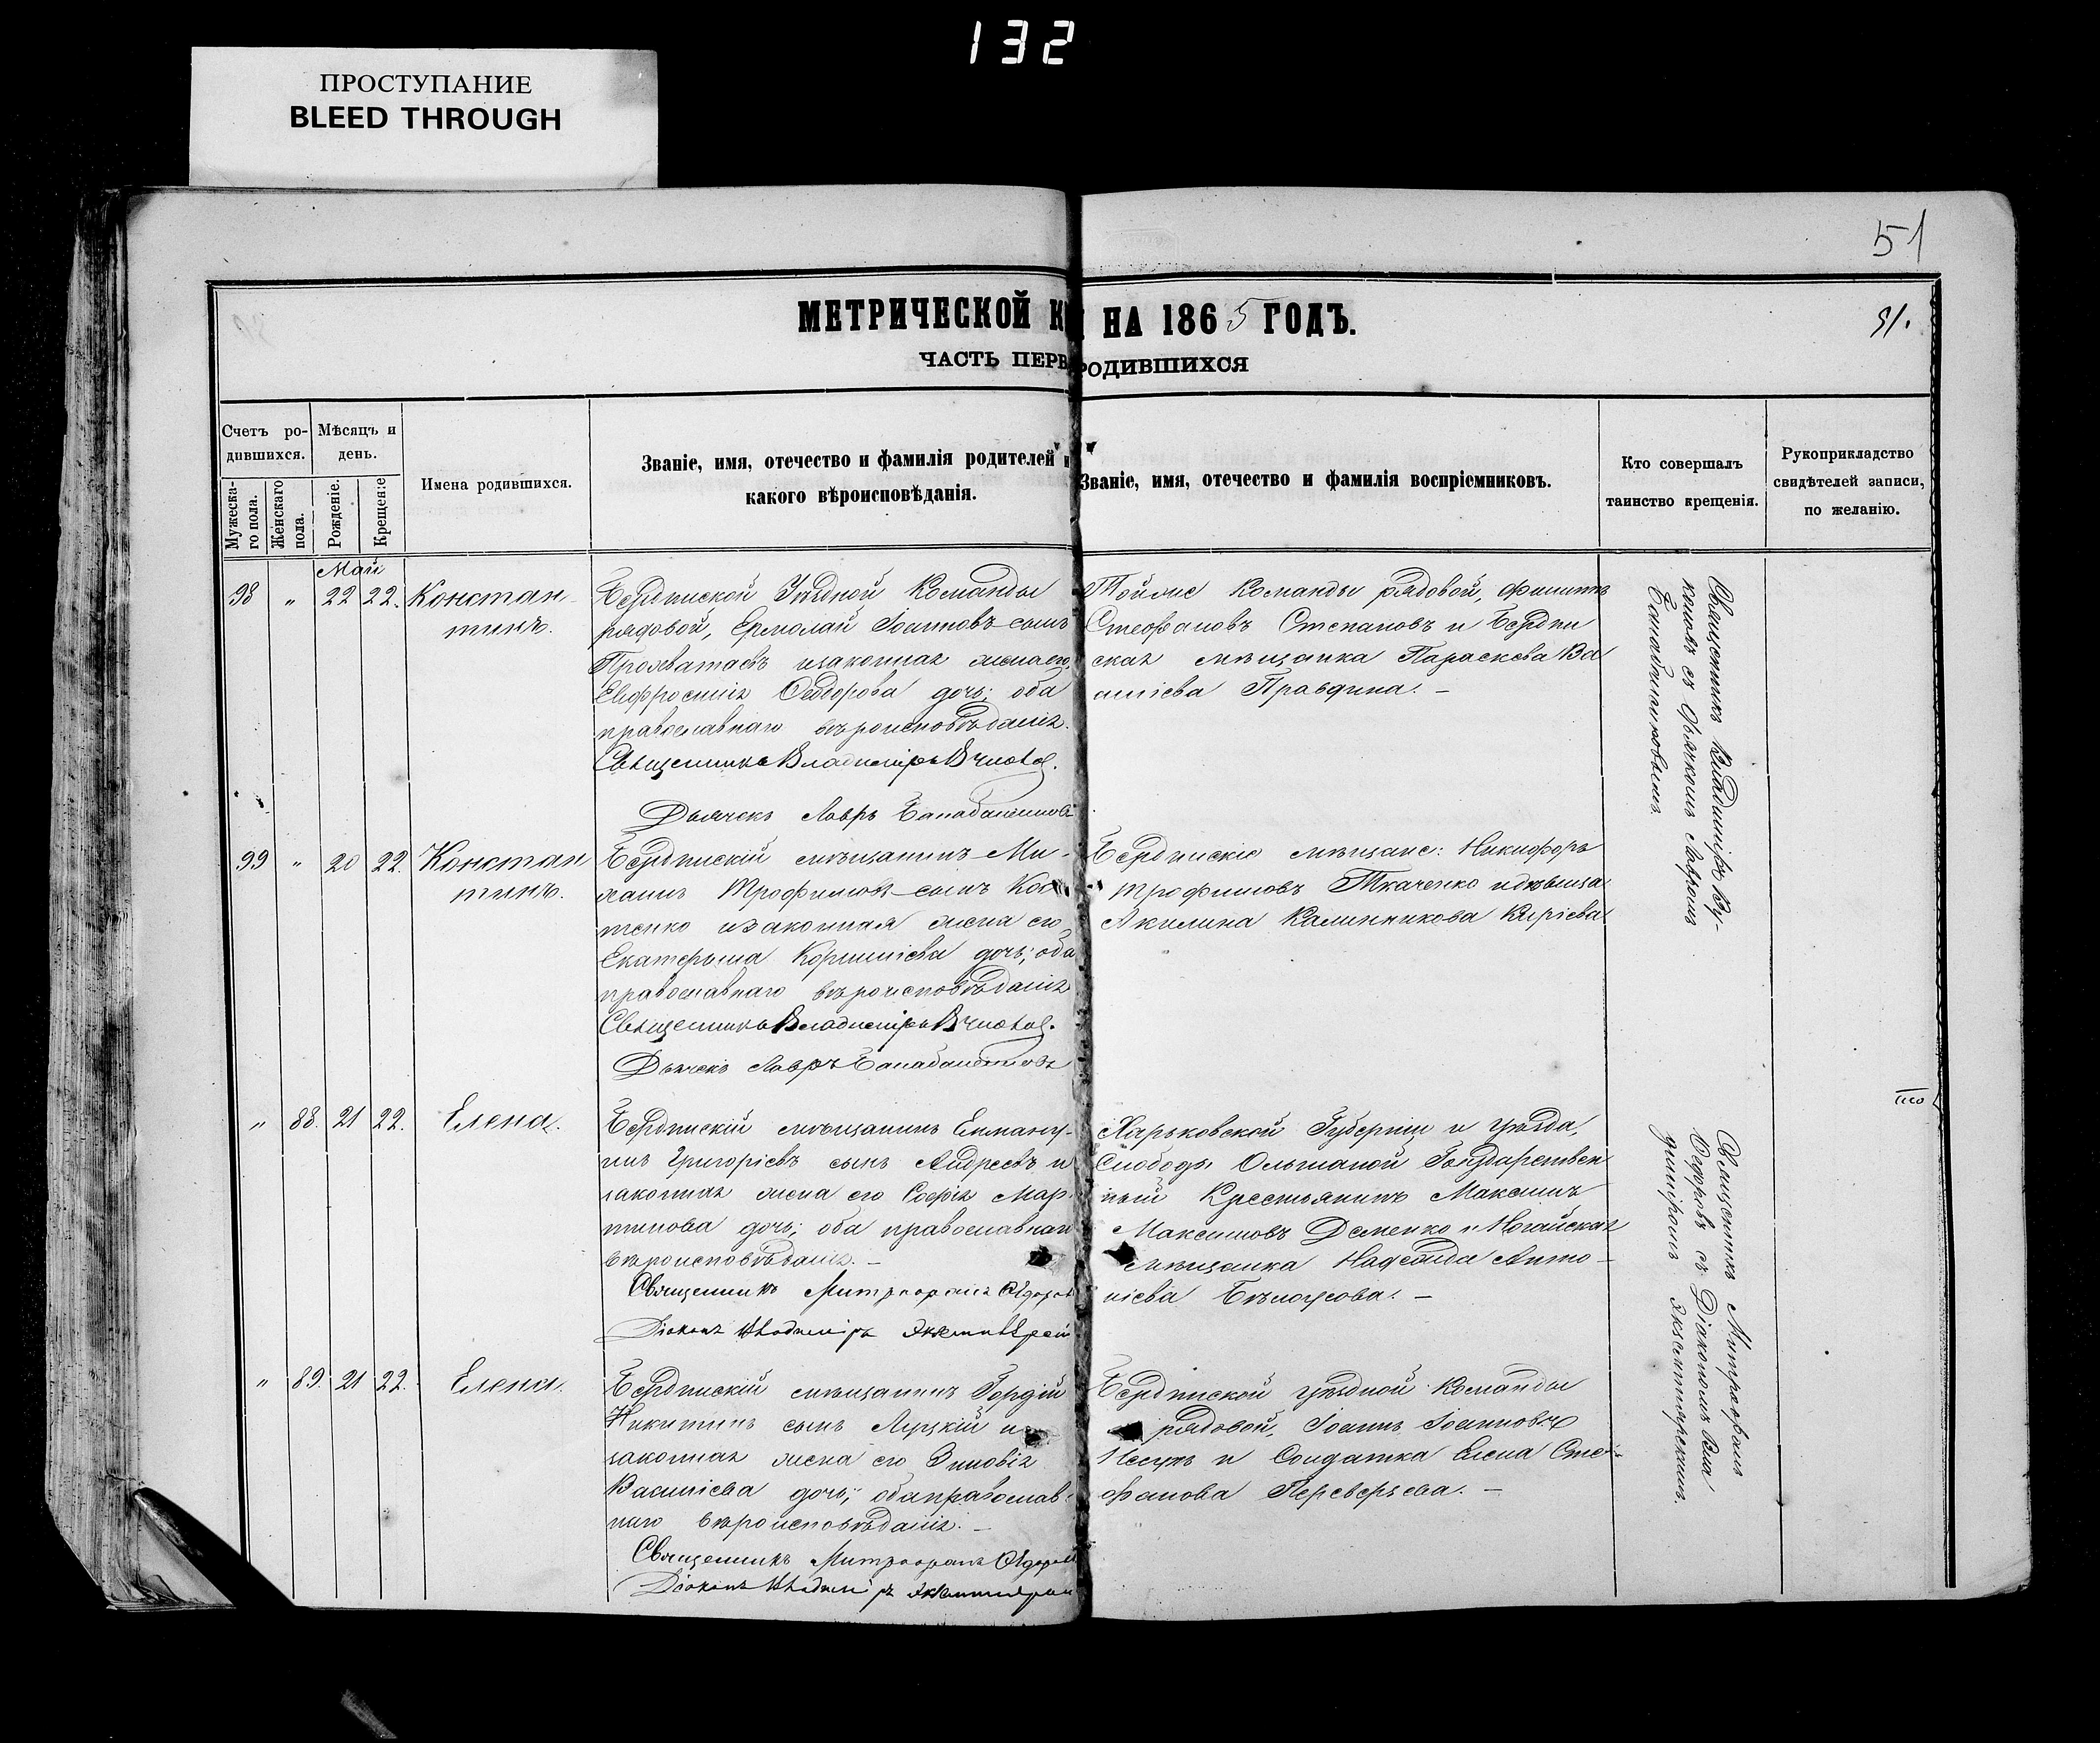 132
ПРОСТУПАНИЕ
BLEED THROUGH
51
МЕТРИЧЕСКОЙ К НА 1865 ГОДЪ.
51.
ЧАСТЬ ПЕРВ РОДИВШИХСЯ
Счетъ ро-
дившихся.
Мужеска-
го пола.
Женскаго
пола.
Мѣсяцъ и
день.
Рожденіе.
Крещеніе
Имена родившихся.
Званіе, имя, отечество и фамилія родителей и
какого вѣроисповѣданія.
Званіе, имя, отечество и фамилія воспріемниковъ.
Кто совершалъ
таинство крещенія.
Рукоприкладство
свидѣтелей записи,
по желанію.
Май
98 " 22 22. Констан-
тинъ.
Бердянской Уѣздной Команды
рядовой, Ермолай Іоанновъ сынъ
изаконная жена его,
Евфросинія Ѳеодорова дочь; оба
православнаго вѣроисповѣданія.
Священникъ Владиміръ
Дьячекъ Лавръ
Тойже Команды рядовой, Филиппъ
Стефановъ Степановъ и Бердян
ская мѣщанка Параскева Ва
силіева Правдина. –
Священникъ Владиміръ
съ Дьячкомъ Лавромъ
99 " 20 22. Констан
тинъ.
Бердянскій мѣщанинъ Ми-
хаилъ Трофимовъ сынъ Кос
тенко изаконная жена его
Екатерина Корниліева дочь; оба
православнаго вѣроисповѣданія
Священникъ Владиміръ
Дьячекъ Лавръ
Бердянскіе мѣщане: Никифоръ
Трофимовъ Ткаченко идѣвица
Акилина Калинникова Киріева
" 88. 21 22. Елена.
Бердянскій мѣщанинъ Еммануи-
лъ Григоріевъ сынъ Андреевъ и
законная жена его Софія Мар-
тинова дочь; оба православнаго
вѣроисповѣданія. –
Священникъ Митрофанъ
Діаконъ Владиміръ
Харьковской Губерніи и уѣзда,
Слободы Ольшаной Государствен
ный Крестьянинъ Максимъ
Максимовъ Деменко и Ногайская
мѣщанка Надежда Анто-
ніева Бѣлоусова. –
Священникъ Митрофанъ
съ Діакономъ Вла
диміромъ
" 89. 21 22. Елена.
Бердянскій мѣщанинъ Гордій
Никитинъ сынъ Луцкій и
законная жена его Зиновія
Василіева дочь; оба православ-
наго вѣроисповѣданія. –
Священникъ Митрофанъ
Діаконъ Владиміръ
Бердянской уѣздной Команды
рядовой, Іоаннъ Іоанновъ
и Солдатка Елена Сте-
фанова Переверзева. –